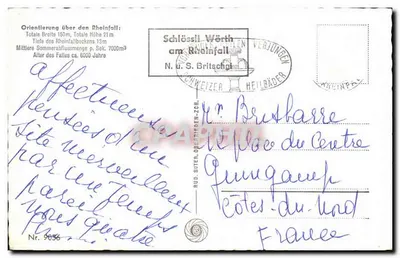 Orientierung über den Rheinfall:
Totale Breite 150m, Totale Höhe 21m
Tiefe des Rheinfallbeckens 13m
Mittlere Sommerabflussmenge p. Sek. 1080m³
Alter des Falles ca. 6000 Jahre
Schlössli Wörth
am Rheinfall
N. u. S. Britschgi
SCHWEIZER HEILBÄDER
affectueuses
pensées d'un
site merveilleux
par un temps
pareil
nous quatre
Nr. 9656
Mr Brisbarre
place du Centre
Guingamp
Côtes-du-Nord
France